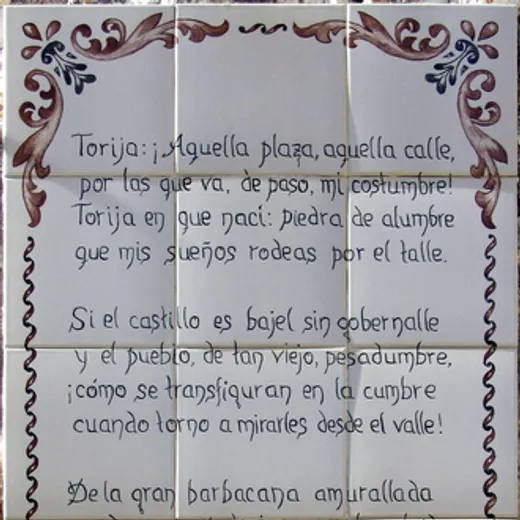 Torija: ¡Aquella plaza, aquella calle,
por las que va, de paso, mi costumbre!
Torija en que nací: piedra de alumbre
que mis sueños rodeas por el talle.
Si el castillo es bajel sin gobernalle
y el pueblo, de tan viejo, pesadumbre,
¡cómo se transfiguran en la cumbre
cuando torno a mirarles desde el valle!
De la gran barbacana amurallada